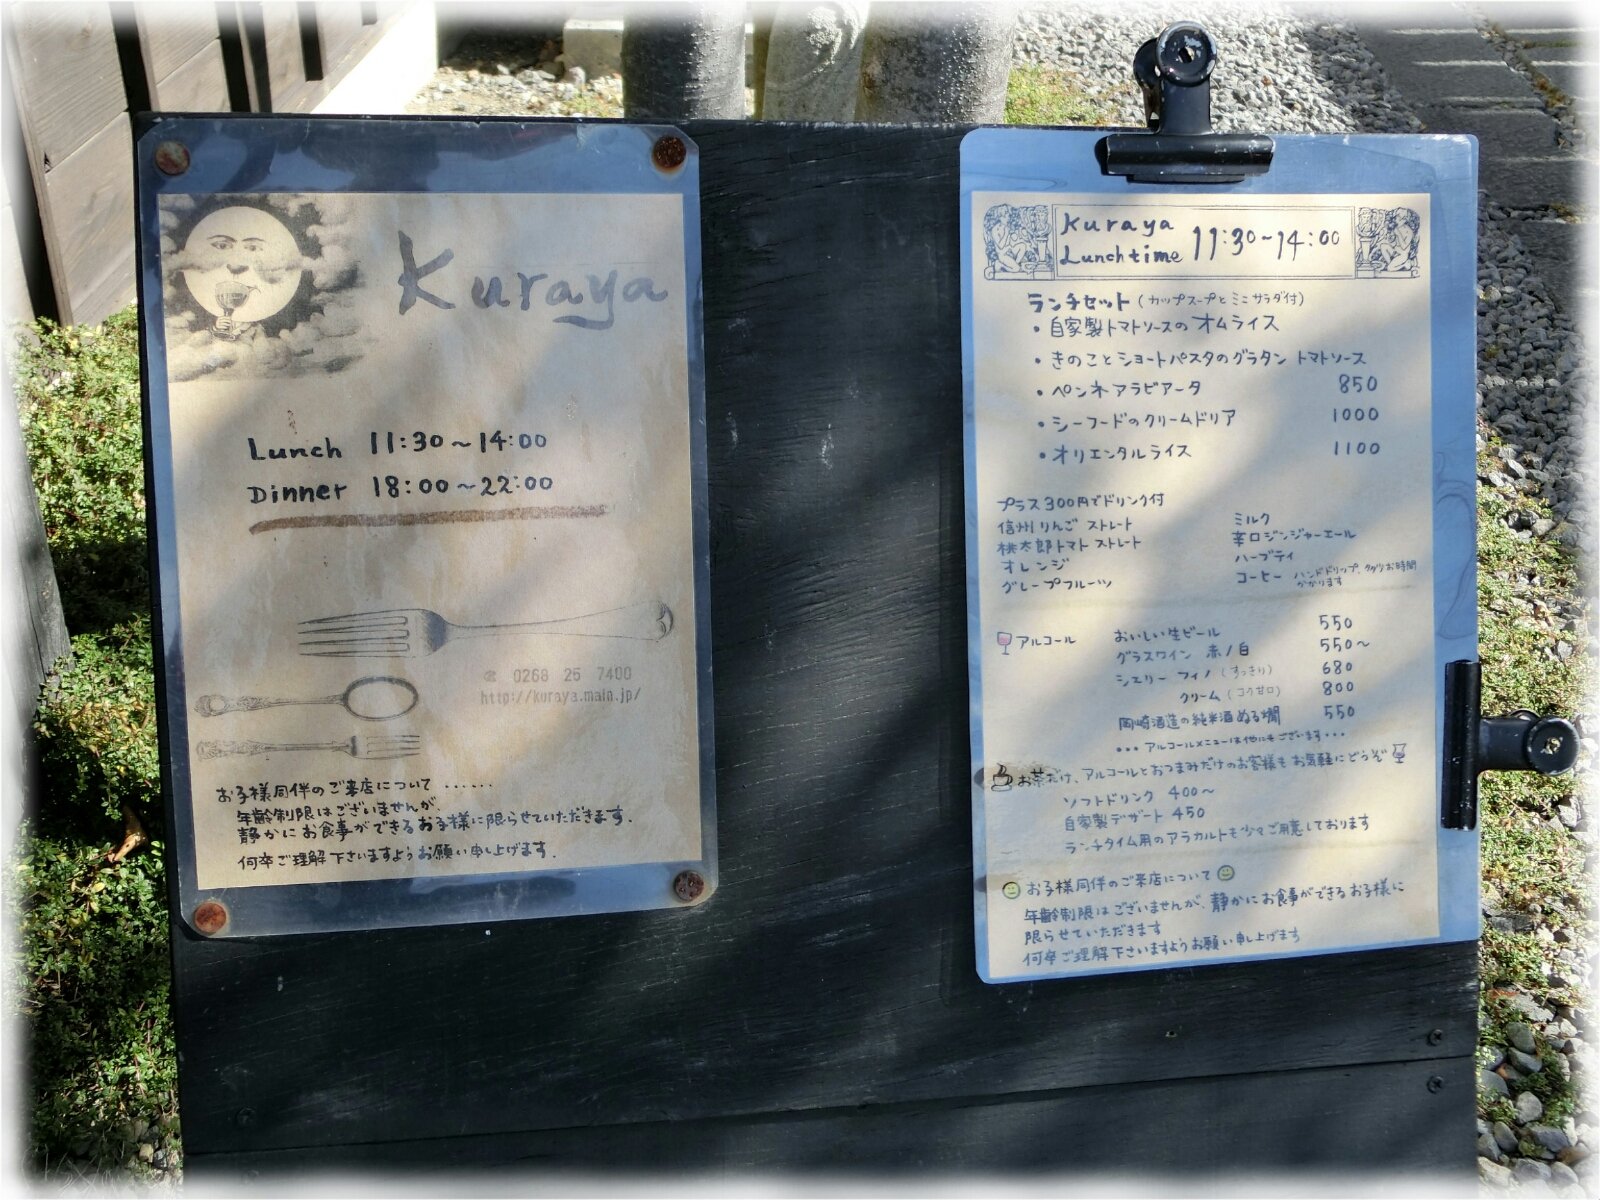 Kuraya
Lunch 11:30~14:00
Dinner 18:00~22:00
☎ 0268 25 7400
http://kuraya.main.jp/
お子様同伴のご来店について ......
年齢制限はございませんが、
静かにお食事ができるお子様に限らせていただきます.
何卒ご理解下さいますようお願い申し上げます.
Kuraya
Lunchtime 11:30~14:00
ランチセット (カップスープとミニサラダ付)
・自家製トマトソースの オムライス
・きのことショートパスタのグラタン トマトソース
・ペンネアラビアータ 850
・シーフードのクリームドリア 1000
・オリエンタルライス 1100
プラス300円でドリンク付
信州りんご ストレート
桃太郎トマト ストレート
オレンジ
グレープフルーツ
ミルク
辛口ジンジャーエール
ハーブティ
コーヒー ハンドドリップ、少々お時間
かかります
アルコール おいしい生ビール 550
グラスワイン 赤/白 550~
シェリー フィノ (すっきり) 680
クリーム (コク甘口) 800
岡崎酒造の純米酒ぬる燗 550
・・・アルコールメニューは他にもございます・・・
お茶だけ、アルコールとおつまみだけのお客様も お気軽にどうぞ
ソフトドリンク 400~
自家製デザート 450
ランチタイム用のアラカルトも少々ご用意しております
お子様同伴のご来店について
年齢制限はございませんが、静かにお食事ができるお子様に
限らせていただきます
何卒ご理解下さいますようお願い申し上げます